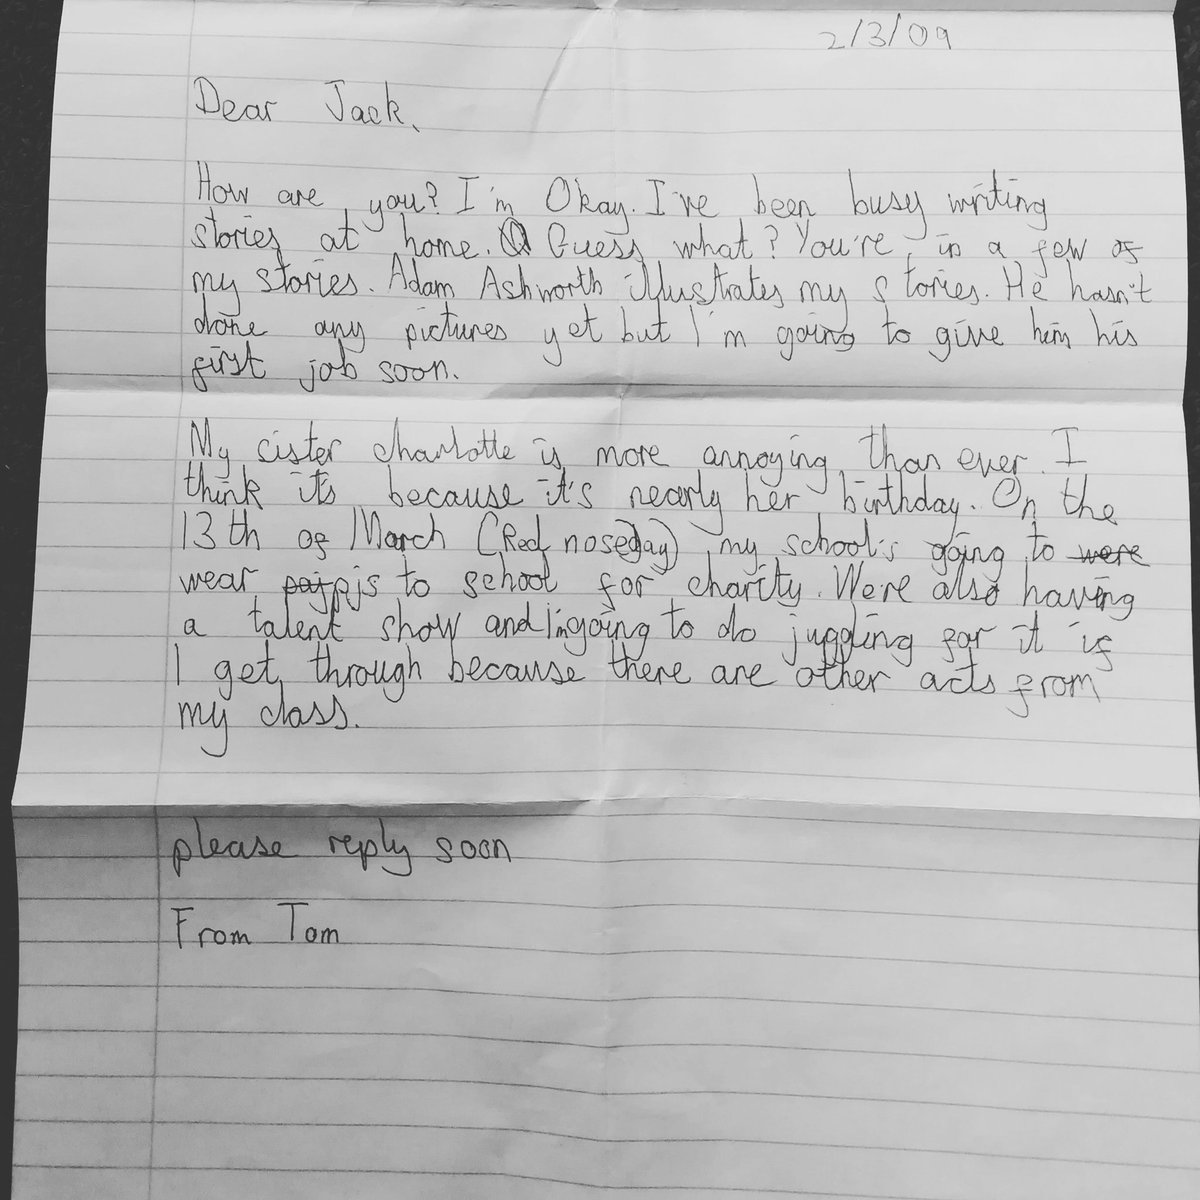 2/3/09
Dear Jack,
How are you? I'm Okay. I've been busy writing
stories at home. Guess what? You're in a few of
my stories. Adam Ashworth illustrates my stories. He hasn't
done any pictures yet but I'm going to give him his
first job soon.
My sister charlotte is more annoying than ever. I
think its because it's nearly her birthday. On the
13th of March (Red noseday) my school's going to were
wear pajpjs to school for charity. We're also having
a talent show and I'm going to do juggling for it if
I get through because there are other acts from
my class.
please reply soon
From Tom